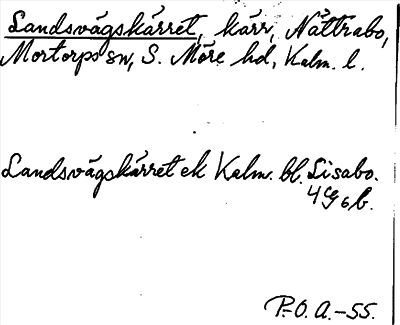 Landsvägskärret, kärr, Nättrabo,
Mortorps sn, S. Möre hd, Kalm. l.
Landsvägskärret ek Kalm. bl. Lisabo.
4 G 6 b.
P.-O. A.-55.